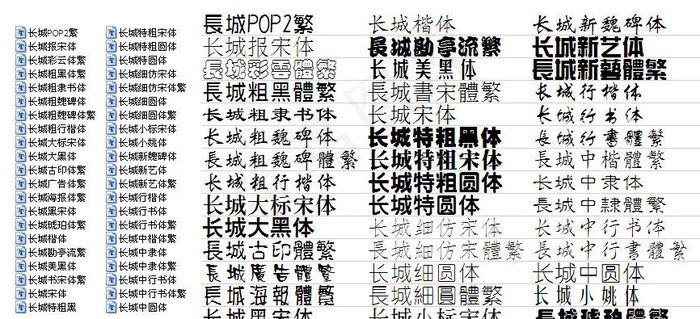 长城POP2繁
长城报宋体
长城彩云体繁
长城粗黑体繁
长城粗隶书体
长城粗魏碑体
长城粗魏碑体繁
长城粗行楷体
长城大标宋体
长城大黑体
长城古印体繁
长城广告体繁
长城海报体繁
长城黑宋体
长城琥珀体繁
长城楷体
长城勘亭流繁
长城美黑体
长城书宋体繁
长城宋体
长城特粗黑
长城特粗宋体
长城特粗圆体
长城特圆体
长城细仿宋体
长城细仿宋体繁
长城细圆体
长城小标宋体
长城小姚体
长城新魏碑体
长城新艺体
长城新艺体繁
长城行楷体
长城行书体
长城行书体繁
长城中楷体繁
长城中隶体
长城中隶体繁
长城中行书体
长城中行书体繁
长城中圆体
長城POP2繁
长城报宋体
長城彩雲體繁
長城粗黑體繁
长城粗隶书体
长城粗魏碑体
長城粗魏碑體繁
长城粗行楷体
长城大标宋体
长城大黑体
長城古印體繁
長城廣告體繁
長城海報體繁
长城黑宋体
长城楷体
長城勘亭流繁
长城美黑体
長城書宋體繁
长城宋体
长城特粗黑体
长城特粗宋体
长城特粗圆体
长城特圆体
长城细仿宋体
長城細仿宋體繁
长城细圆体
長城細圓體繁
长城小标宋体
长城新魏碑体
长城新艺体
長城新藝體繁
长城行楷体
长城行书体
長城行書體繁
長城中楷體繁
长城中隶体
長城中隸體繁
长城中行书体
長城中行書體繁
长城中圆体
长城小姚体
長城琥珀體繁